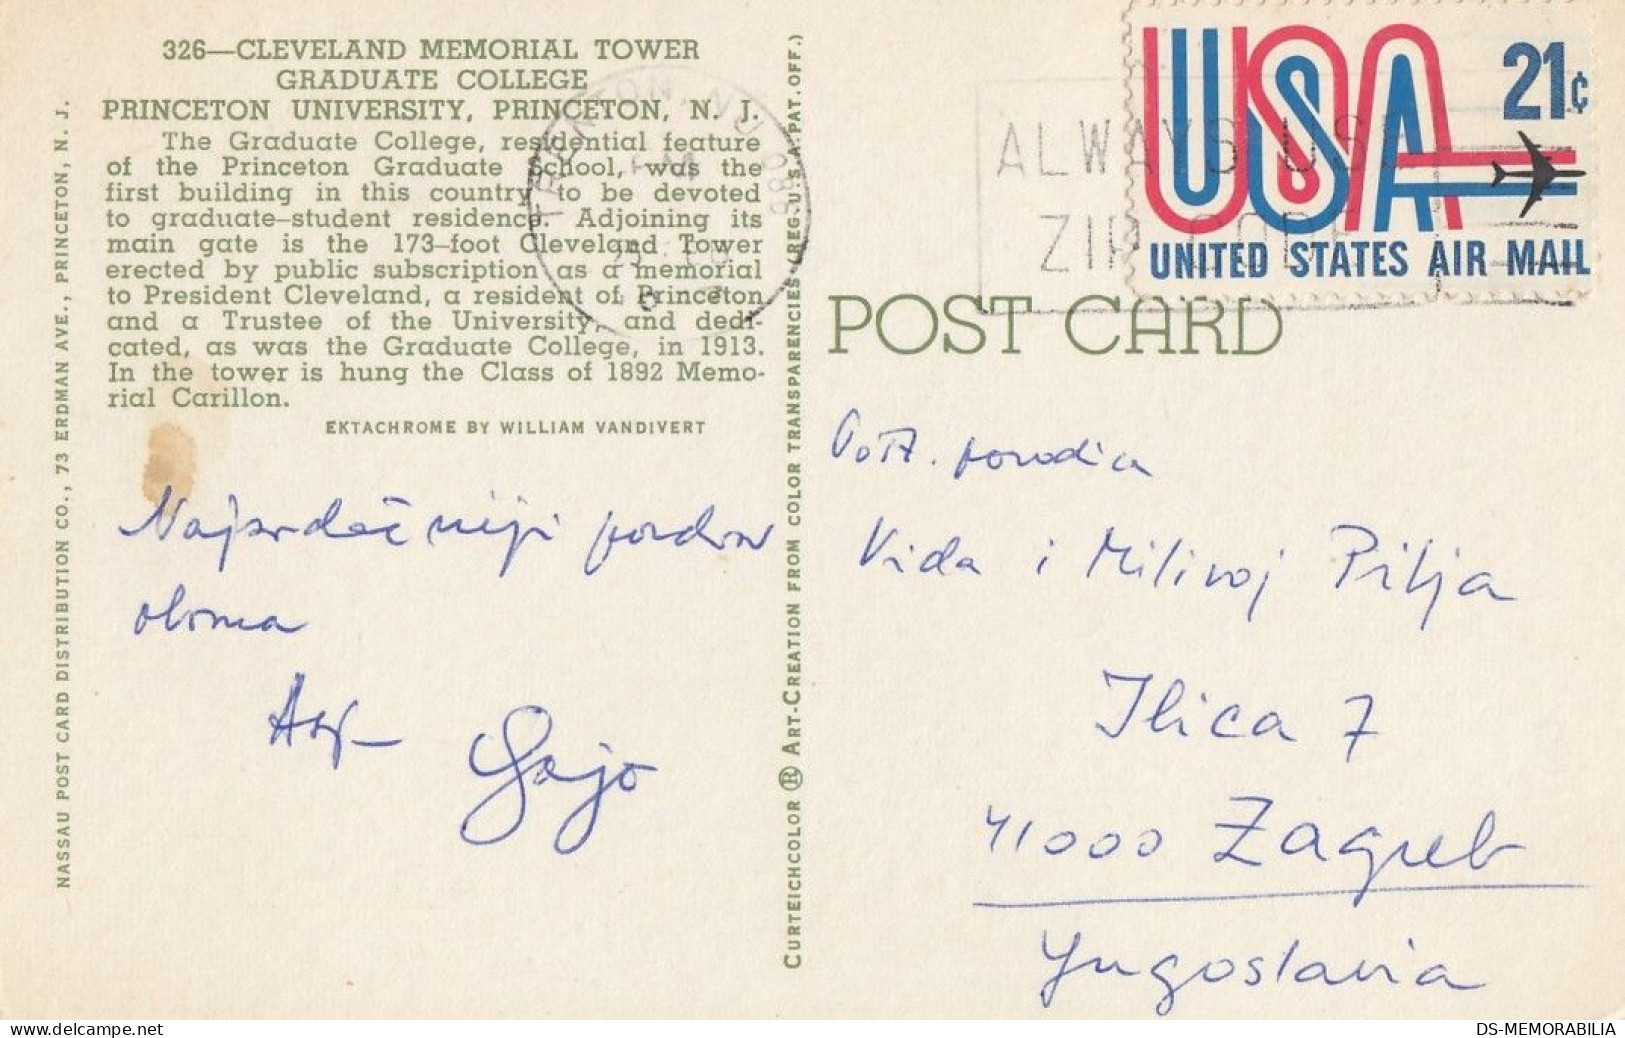 326—CLEVELAND MEMORIAL TOWER
GRADUATE COLLEGE
PRINCETON UNIVERSITY, PRINCETON, N. J.
The Graduate College, residential feature
of the Princeton Graduate School, was the
first building in this country to be devoted
to graduate—student residence. Adjoining its
main gate is the 173—foot Cleveland Tower
erected by public subscription as a memorial
to President Cleveland, a resident of Princeton
and a Trustee of the University, and dedi-
cated, as was the Graduate College, in 1913.
In the tower is hung the Class of 1892 Memo-
rial Carillon.
EKTACHROME BY WILLIAM VANDIVERT
NASSAU POST CARD DISTRIBUTION CO., 73 ERDMAN AVE., PRINCETON, N. J.
Najsrdačniji pozdrav
obima
Gojo
CURTEICHCOLOR ® ART-CREATION FROM COLOR TRANSPARENCIES (REG. U.S.A. PAT. OFF.)
USA
21¢
UNITED STATES AIR MAIL
ALWAYS USE
ZIP CODE
POST CARD
Pošt. porodica
Vida i Milivoj Pilja
Ilica 7
41000 Zagreb
Yugoslavia
DS-MEMORABILIA